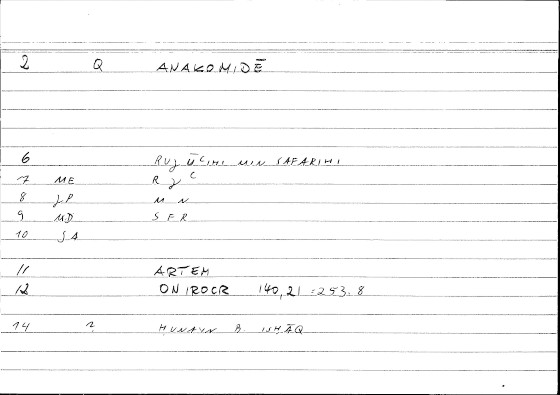 2 Q ANAKOMIDĒ
6 RUJŪʿIHI MIN SAFARIHI
7 ME R J ʿ
8 JP M N
9 MD S F R
10 SA
11 ARTEM
12 ONIROCR 140,21 = 253.8
14 2 HUNAYN B. ISHĀQ